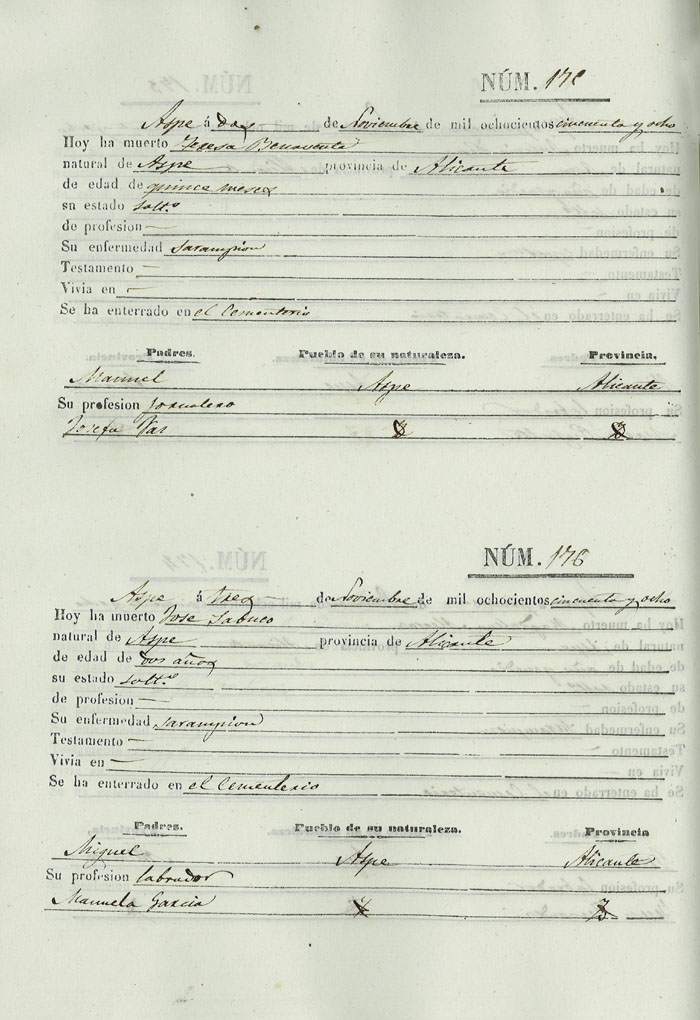 NÚM. 175
Aspe á dos de Noviembre de mil ochocientos cincuenta y ocho
Hoy ha muerto Teresa Benavente
natural de Aspe provincia de Alicante
de edad de quince meses
su estado solt.ª
de profesion —
Su enfermedad sarampion
Testamento —
Vivia en —
Se ha enterrado en el Cementerio
Padres. Pueblo de su naturaleza. Provincia.
Manuel Aspe Alicante
Su profesion Jornalero
Josefa
NÚM. 176
Aspe á tres de Noviembre de mil ochocientos cincuenta y ocho
Hoy ha muerto Jose Sabuco
natural de Aspe provincia de Alicante
de edad de dos años
su estado solt.º
de profesion —
Su enfermedad sarampion
Testamento —
Vivia en —
Se ha enterrado en el Cementerio
Padres. Pueblo de su naturaleza. Provincia
Miguel Aspe Alicante
Su profesion labrador
Manuela Garcia